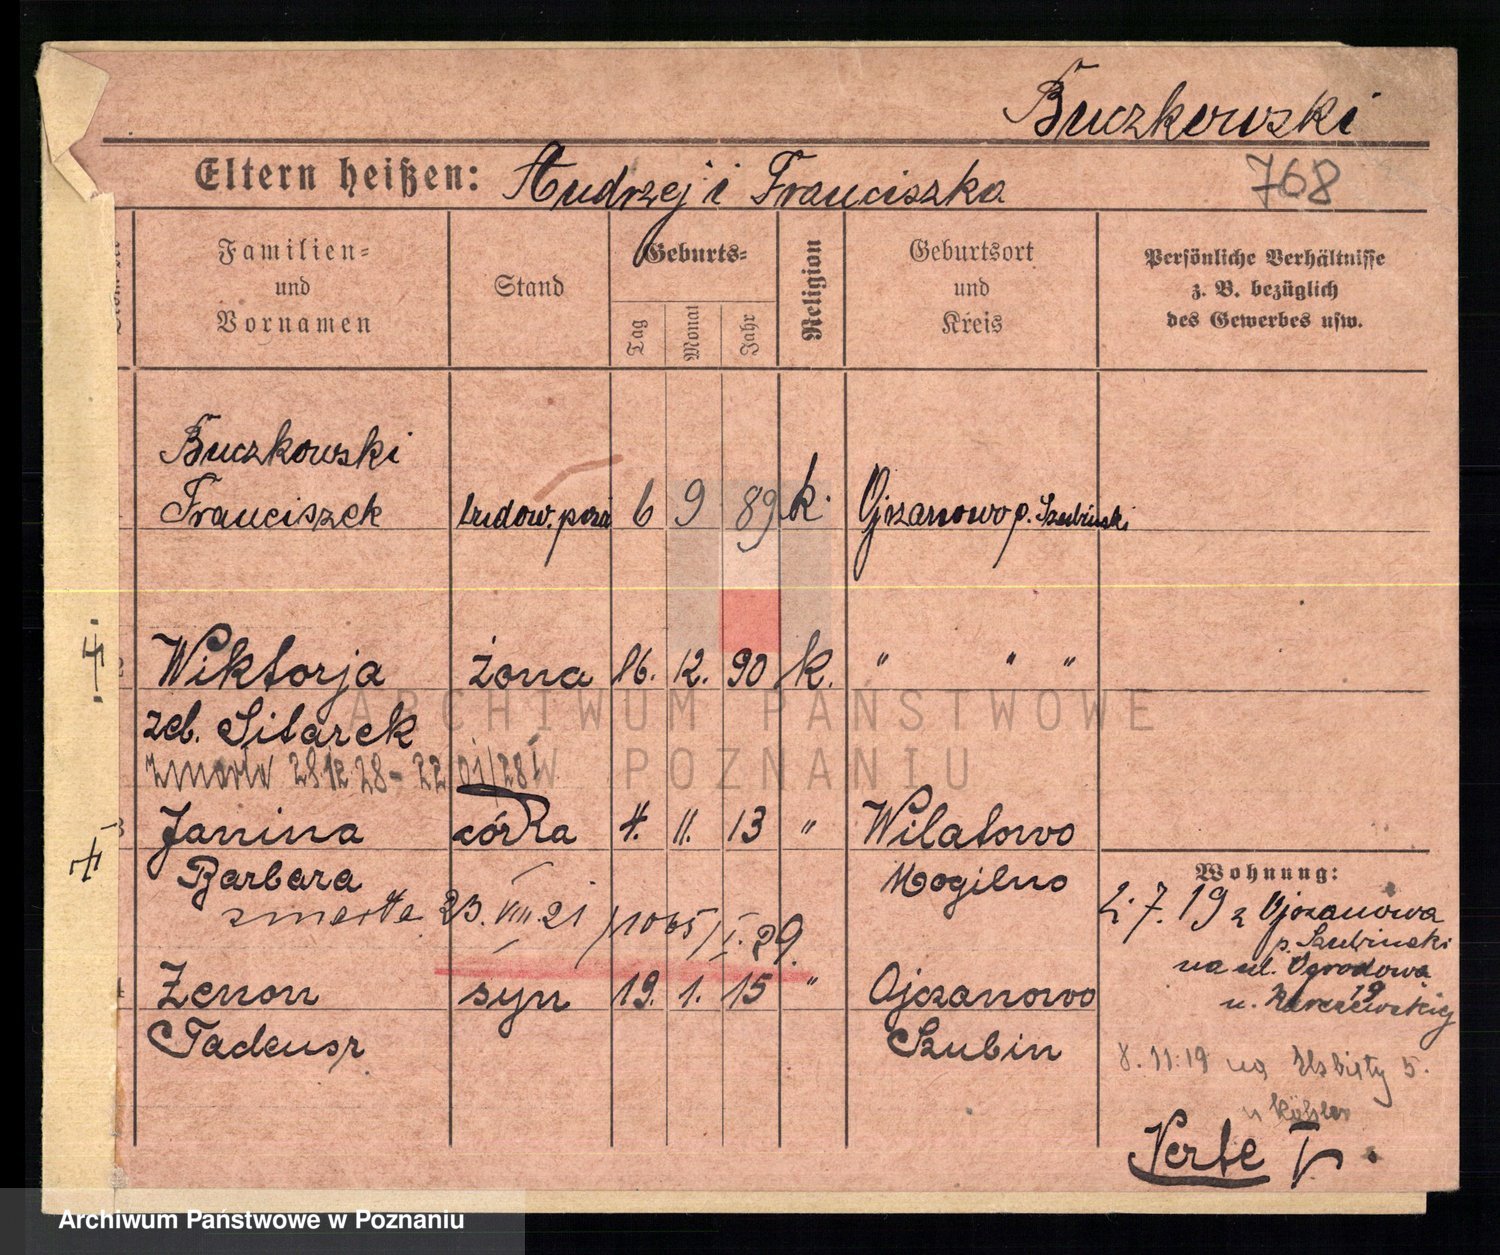 Buczkowski
Eltern heißen: Andrzej i Franciszka
768
Familien= und Vornamen
Stand
Geburts=
Tag
Monat
Jahr
Religion
Geburtsort und Kreis
Persönliche Verhältnisse z. B. bezüglich des Gewerbes usw.
Buczkowski
Franciszek 6 9 89 k. Ojrzanowo p. Szubiński
Wiktorja żona 16. 12. 90 k. " " "
zeb. Sitarek
zmarła 28 12 28 - 22
Janina córka 4. 11. 13 " Wilatowo
Barbara Mogilno
zmarła 23. VIII. 21 /1065/ I. 29.
Zenon syn 19. 1. 15 " Ojrzanowo
Tadeusz Szubin
Wohnung:
2. 7. 19 z Ojrzanowa
p. Szubiński
na ul. Ogrodowa
19
8. 11. 19 na Elżbiety 5.
u Köhler
Verte
ARCHIWUM PAŃSTWOWE
W POZNANIU
Archiwum Państwowe w Poznaniu